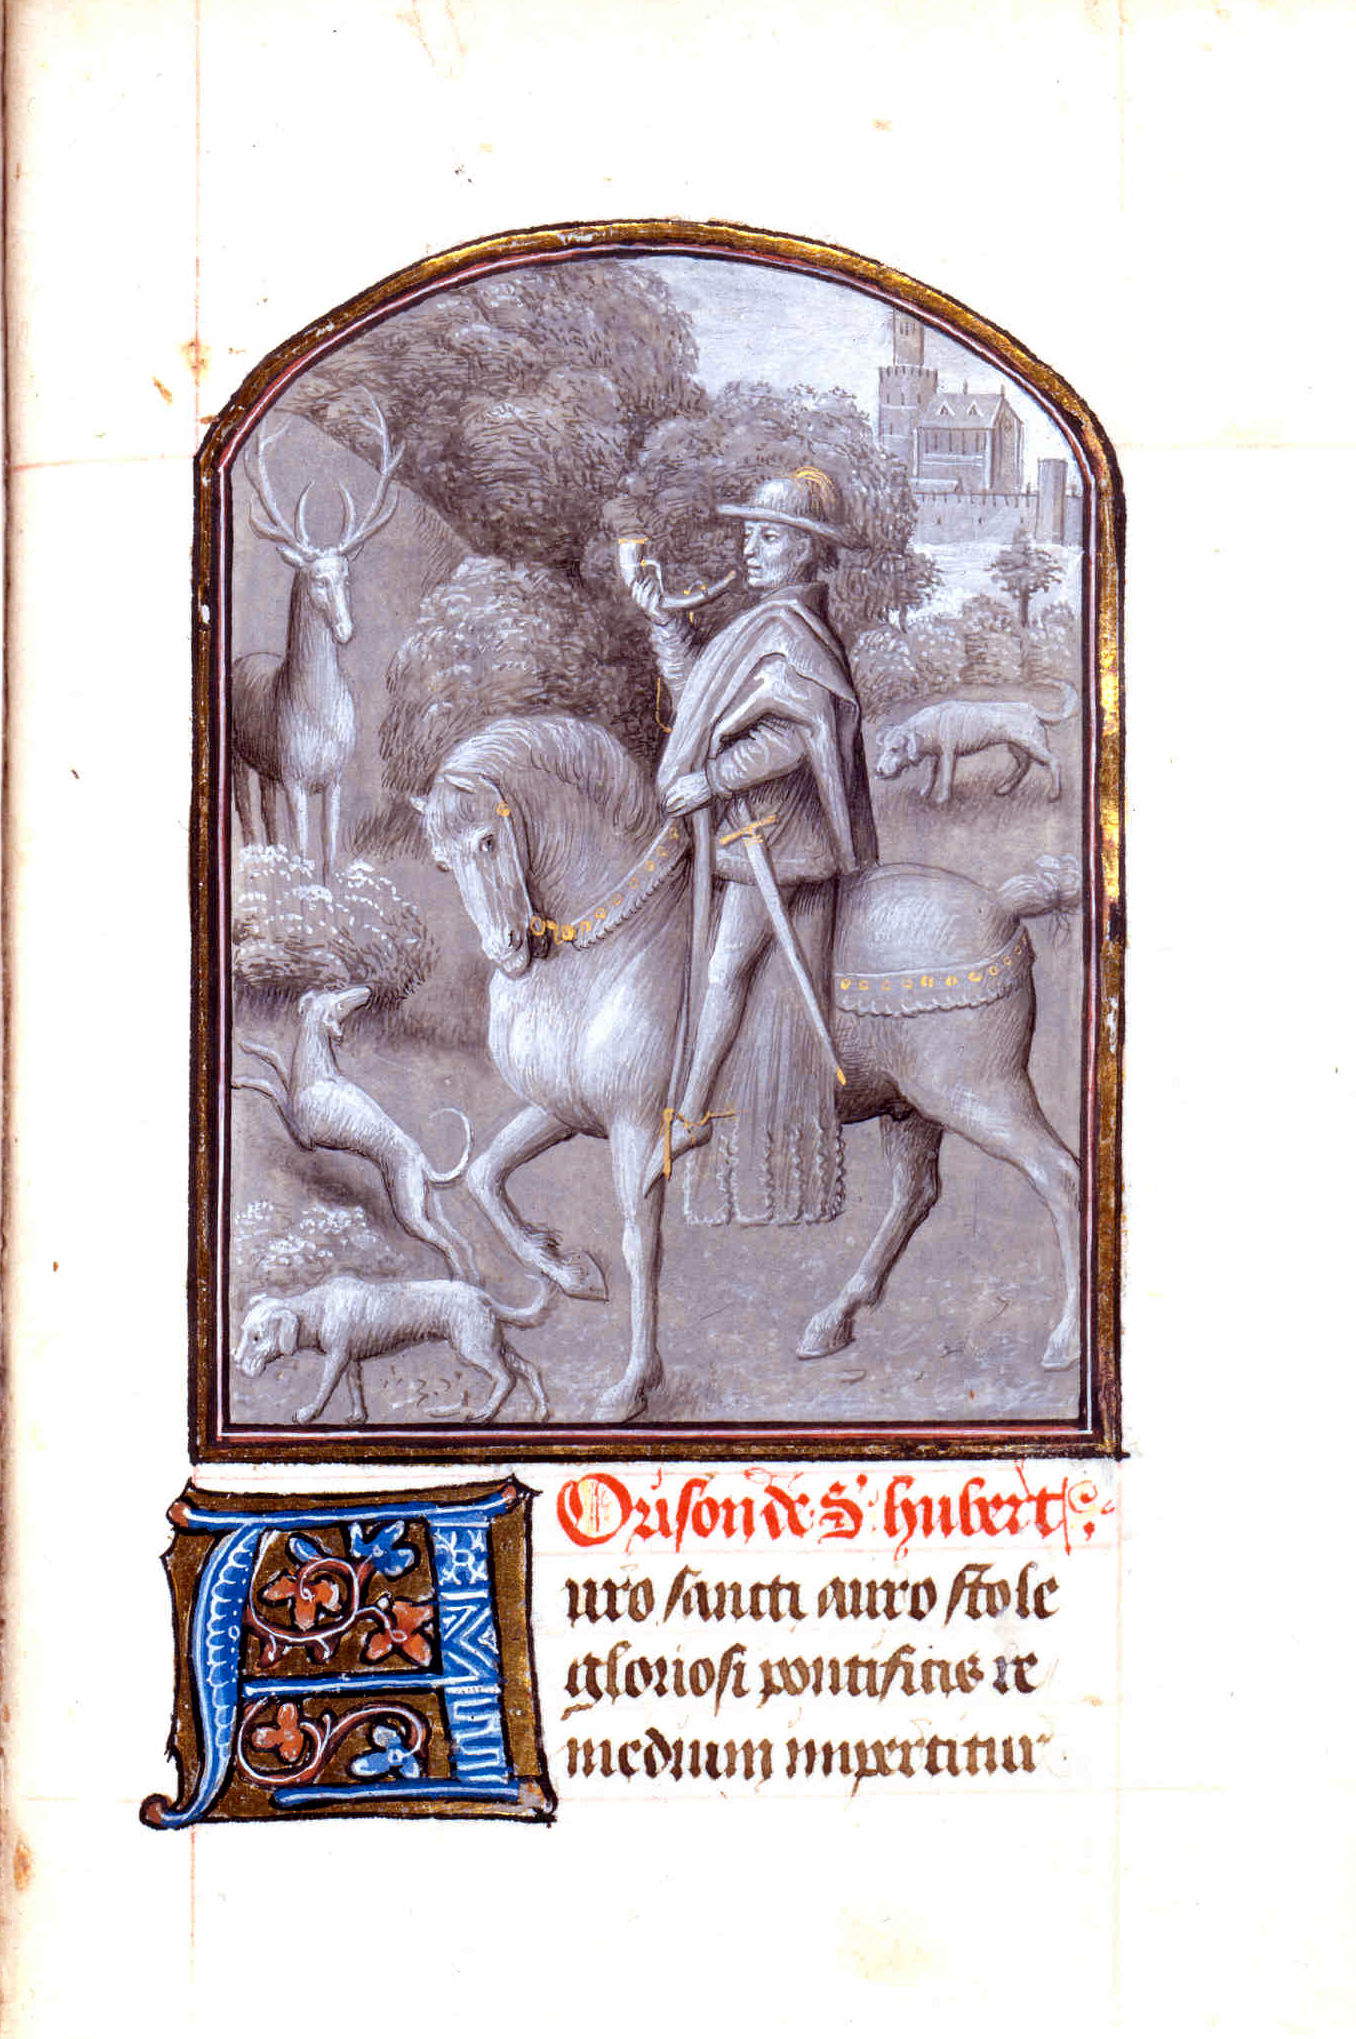 Orison de S. hubert
Auro sancti auro stole
gloriosi pontificis re
medium impertitur